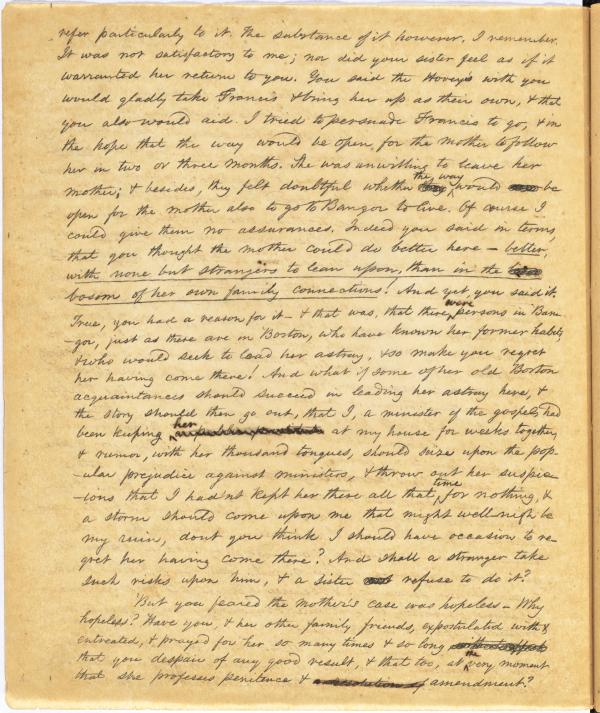 refer particularly to it. The substance of it however, I remember.
It was not satisfactory to me; nor did your sister feel as if it
warranted her return to you. You said the Hoveys with you
would gladly take Francis & bring her up as their own, & that
you also would aid. I tried to persuade Francis to go, & in
the hope that the way would be open, for the mother to follow
her in two or three months. She was unwilling to leave her
mother; & besides, they felt doubtful whether the way would be
open for the mother also to go to Bangor to live. Of course I
could give them no assurances. Indeed you said in terms,
that you thought the mother could do better here – better,
with none but strangers to lean upon, than in the
bosom of her own family connections! And yet, you said it.
True, you had a reason for it – & that was, that there were persons in Ban-
-gor, just as there are in Boston, who have known her former habits,
& who would seek to lead her astray, & so make you regret
her having come there! And what if some of her old Boston
acquaintances should succeed in leading her astray here, &
the story should then go out, that I, a minister of the gospel, had
been keeping her at my house for weeks together,
& rumor, with her thousand tongues, should seize upon the pop-
-ular prejudice against ministers, & throw out her suspic-
-ions that I had n't kept her there all that time for nothing, &
a storm should come upon me that might well-nigh be
my ruin, dont you think I should have occasion to re-
gret her having come there? And shall a stranger take
such risks upon him, & a sister refuse to do it?
But you feared the mother's case was hopeless – Why
hopeless? Have you, & her other family friends, expostulated with &
entreated, & prayed for her so many times & so long
that you despair of any good result, & that too, at the very moment
that she professes penitence & amendment?